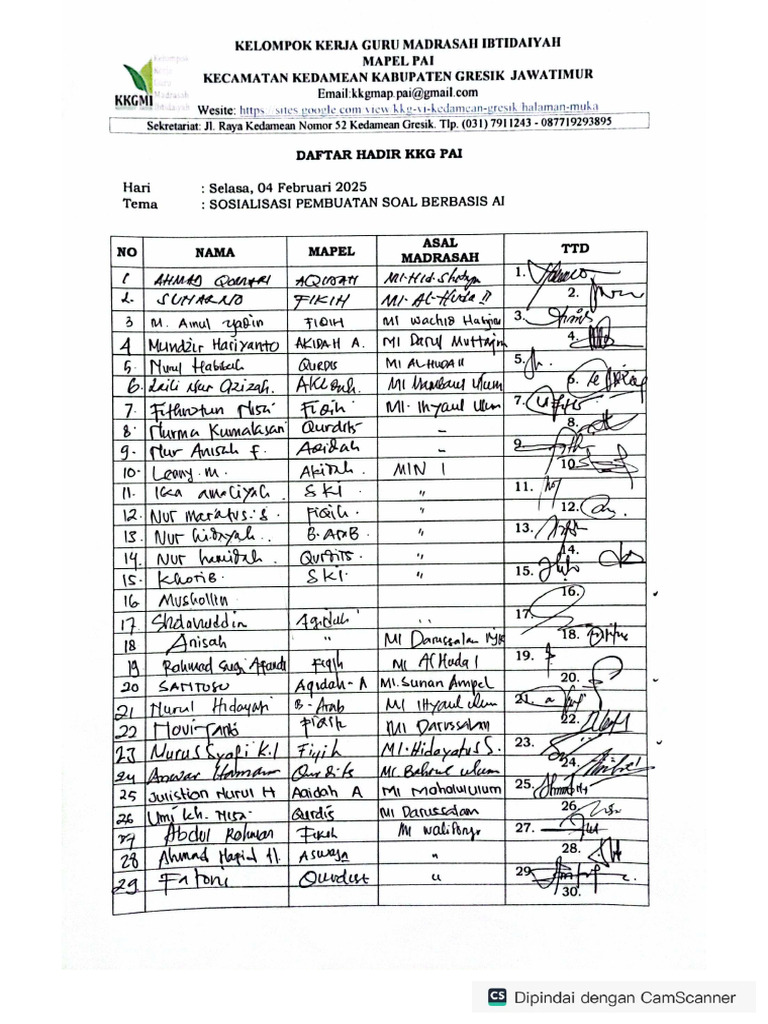 KELOMPOK KERJA GURU MADRASAH IBTIDAIYAH
MAPEL PAI
KECAMATAN KEDAMEAN KABUPATEN GRESIK JAWATIMUR
Email:kkgmap.pai@gmail.com
Kelompok
Kerja
Guru
Madrasah
Ibtidaiyah
KKGMI
Wesite: https://sites.google.com/view/kkg-vi-kedamean-gresik/halaman-muka
Sekretariat: Jl. Raya Kedamean Nomor 52 Kedamean Gresik. Tlp. (031) 7911243 - 087719293895
DAFTAR HADIR KKG PAI
Hari : Selasa, 04 Februari 2025
Tema : SOSIALISASI PEMBUATAN SOAL BERBASIS AI
NO NAMA MAPEL ASAL MADRASAH TTD
1 AHMAD AQIDAH 1.
2. SUHARNO FIKIH MI. Al-Huda II 2.
3 M. Ainul Yaqin FIQIH MI Wachid 3.
4 Mundzir Hariyanto AKIDAH A. MI Darul Muttaqin 4.
5. Nurul Habibah QURDIS MI ALHUDA II 5.
6. Laili Nur Azizah. MI Ulum 6.
7. Fithrotun Nisa Fiqih MI. Ihyaul Ulum 7.
8. Nurma Kumalasari Qurdits - 8.
9. Nur Anisah F. Aqidah - 9.
10. Leony. M. Akidah MIN 1 10
11. Ika amaliyah SKI " 11.
12. Nur S Fiqih " 12.
13. Nur hidayah. B. ARAB " 13.
14. Nur hamidah. Qurdits. " 14.
15. Khotib SKI. " 15.
16 16.
17. Aqidah " 17.
18 Anisah " MI Darussalam 18.
19 Rahmad Sugi Afandi Fiqih MI Al Huda 1 19.
20 SANTOSO Aqidah-A MI. Sunan Ampel 20.
21 Nurul Hidayati B-Arab MI Ihyaul Ulum 21.
22 Novi MI DARUSSALAM 22.
23 Nurus Syafi K.I Fiqih MI. Hidayatus S. 23.
24 Anwar Qurdits MI. Bahrul Ulum 24.
25 Nurul H Aqidah A MI Ulum 25.
26 Umi Kh. Nisa. Qurdis MI Darussalam 26
27 Abdul Rohman Fikih MI Walisongo 27.
28 Ahmad H. ASWAJA " 28.
29 Fatoni " 29
30.
CS Dipindai dengan CamScanner